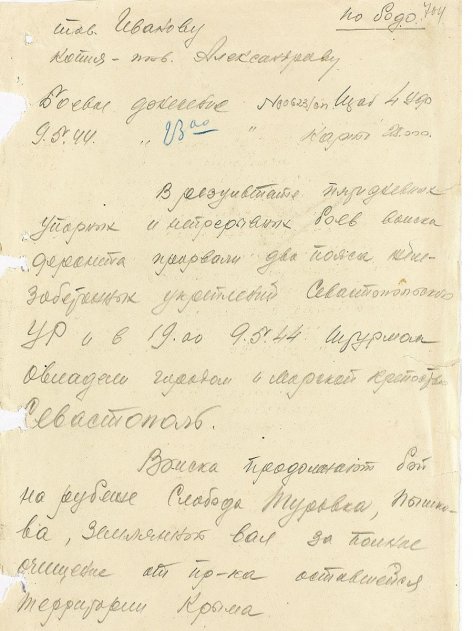 по бодо. 704
тов. Иванову
копия - тов. Александрову
Боевое донесение №00623/оп Штаб 4 Укр
9.5.44. " 23 00 " Карты
В результате трехдневных
упорных и непрерывных боев войска
фронта прорвали два пояса желе-
зобетонных укреплений Севастопольского
УР и в 19.00 9.5.44 штурмом
овладели городом и морской крепостью
Севастополь.
Войска продолжают бой
на рубеже Слобода Туровка,
Земляной вал за полное
очищение от пр-ка оставшейся
территории Крыма